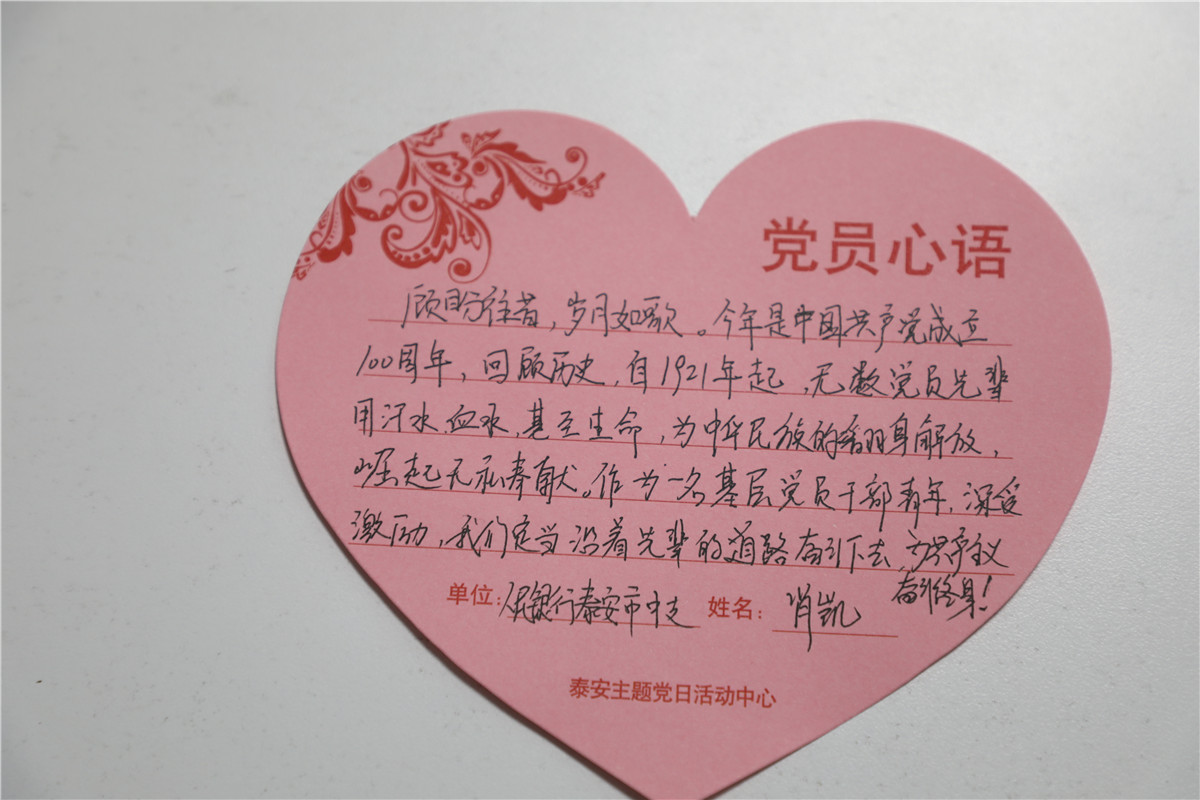 党员心语
顾盼往昔，岁月如歌。今年是中国共产党成立
100周年，回顾历史，自1921年起，无数党员先辈
用汗水、血水，甚至生命，为中华民族的翻身解放，
崛起无私奉献。作为一名基层党员干部青年，深受
激励，我们定当沿着先辈的道路奋斗下去，为共产主义
奋斗终身！
单位：人民银行泰安市中支 姓名：肖凯
泰安主题党日活动中心